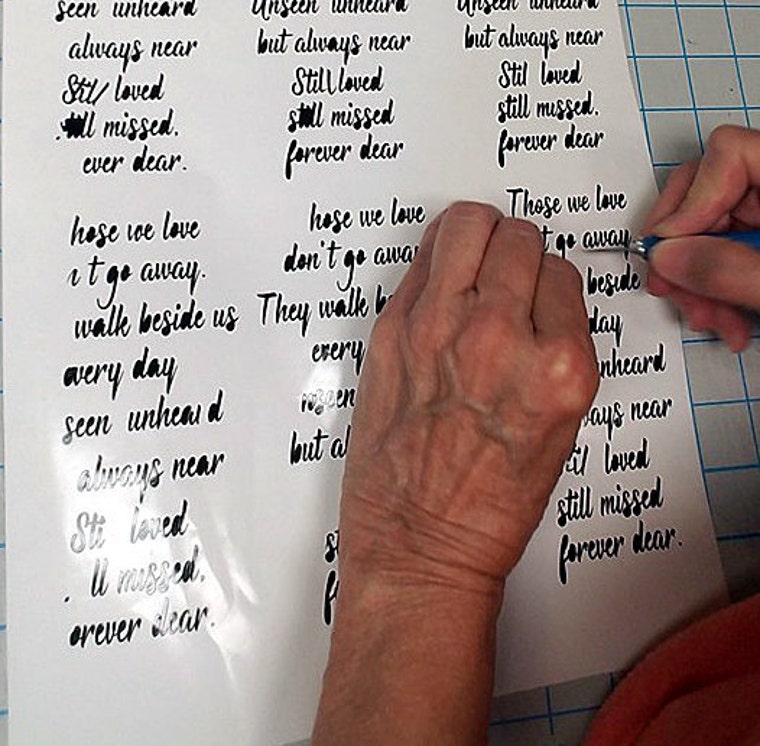 seen unheard
always near
Still loved
ll missed.
ever dear.
Unseen unheard
but always near
Still loved
still missed
forever dear
Unseen unheard
but always near
Stil loved
still missed.
forever dear
hose we love
t go away.
walk beside us
every day
seen unheard
always near
Sti loved
. ll missed.
orever dear.
hose we love
don't go away
They walk b
every
seen
but al
st
f
Those we love
t go away
beside
day
nheard
ays near
il loved
still missed
forever dear.